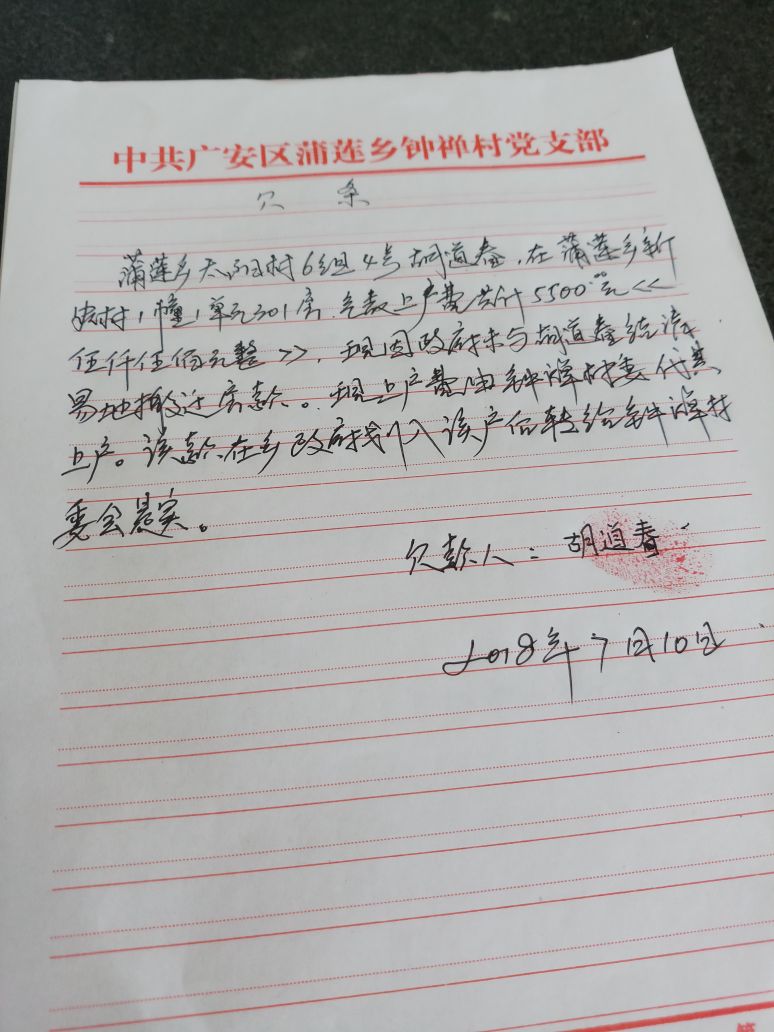 中共广安区蒲莲乡钟禅村党支部
欠条
蒲莲乡太阳村6组4号胡道春,在蒲莲乡新
农村1幢1单元301房,气数上户费共计5500.00元<<
伍仟伍佰元整>>,现因政府未与胡道春结清
易地搬迁房款。现上户费由钟禅村委代其
上户。该款在乡政府拨入该户后转给钟禅村
委会是实。
欠款人:胡道春
2018年7月10日